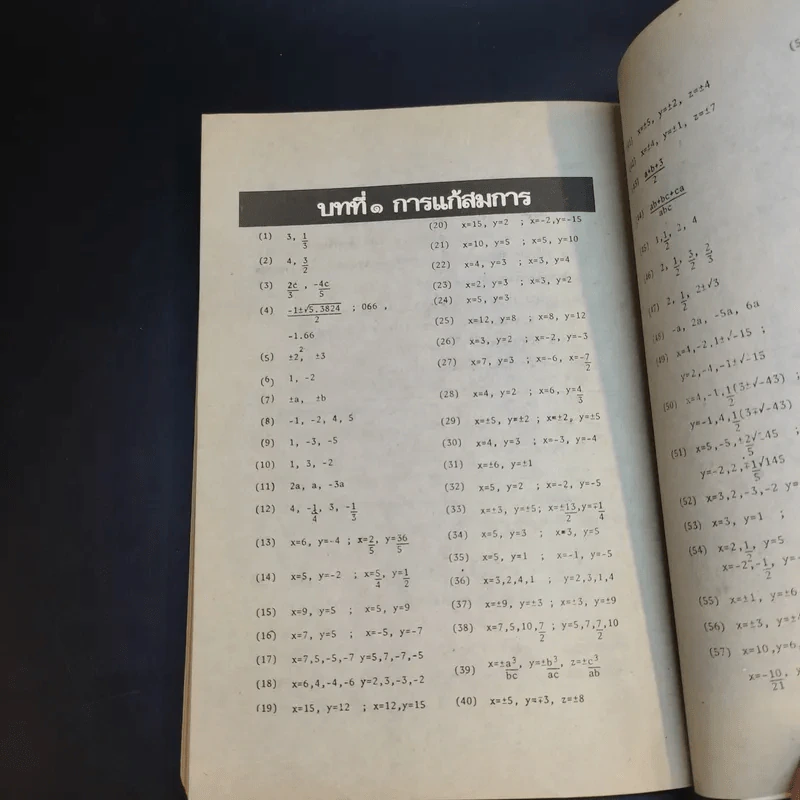 บทที่ ๑ การแก้สมการ
(1) 3, 1/3
(2) 4, 3/2
(3) 2c/3 , -4c/5
(4) -1±√5.3824/2 ; 066 ,
-1.66
(5) ±2, ±3
(6) 1, -2
(7) ±a, ±b
(8) -1, -2, 4, 5
(9) 1, -3, -5
(10) 1, 3, -2
(11) 2a, a, -3a
(12) 4, -1/4, 3, -1/3
(13) x=6, y=-4 ; x=2/5, y=36/5
(14) x=5, y=-2 ; x=5/4, y=1/2
(15) x=9, y=5 ; x=5, y=9
(16) x=7, y=5 ; x=-5, y=-7
(17) x=7,5,-5,-7 y=5,7,-7,-5
(18) x=6,4,-4,-6 y=2,3,-3,-2
(19) x=15, y=12 ; x=12,y=15
(20) x=15, y=2 ; x=-2,y=-15
(21) x=10, y=5 ; x=5, y=10
(22) x=4, y=3 ; x=3, y=4
(23) x=2, y=3 ; x=3, y=2
(24) x=5, y=3
(25) x=12, y=8 ; x=8, y=12
(26) x=3, y=2 ; x=-2, y=-3
(27) x=7, y=3 ; x=-6, x=-7/2
(28) x=4, y=2 ; x=6, y=4/3
(29) x=±5, y=±2 ; x=±2, y=±5
(30) x=4, y=3 ; x=-3, y=-4
(31) x=±6, y=±1
(32) x=5, y=2 ; x=-2, y=-5
(33) x=±3, y=±5; x=±13/2,y=∓1/4
(34) x=5, y=3 ; x=3, y=5
(35) x=5, y=1 ; x=-1, y=-5
(36) x=3,2,4,1 ; y=2,3,1,4
(37) x=±9, y=±3 ; x=±3, y=±9
(38) x=7,5,10,7/2 ; y=5,7,7/2,10
(39) x=±a³/bc, y=±b³/ac, z=±c³/ab
(40) x=±5, y=∓3, z=±8
x=±5, y=±2, z=±4
x=±4, y=±1, z=±7
a+b+3/2
(44) ab+bc+ca/abc
(45) 1,1/2, 2, 4
(46) 2, 1/2, 3/2, 2/3
(47) 2, 1/2, 2±√3
(48) -a, 2a, -5a, 6a
(49) x=4,-2,1±√-15 ;
y=2,-4,-1±√-15
(50) x=4,-1,1/2(3±√-43) ;
y=-1,4,1/2(3∓√-43)
(51) x=5,-5,±2/5√145
y=-2,2,∓1/5√145
(52) x=3,2,-3,-2
(53) x=3, y=1 ;
(54) x=2,1/2, y=5
x=-2,-1/2,
(55) x=±1, y=±6
(56) x=±3,
(57) x=10,y=6,
x=-10/21,